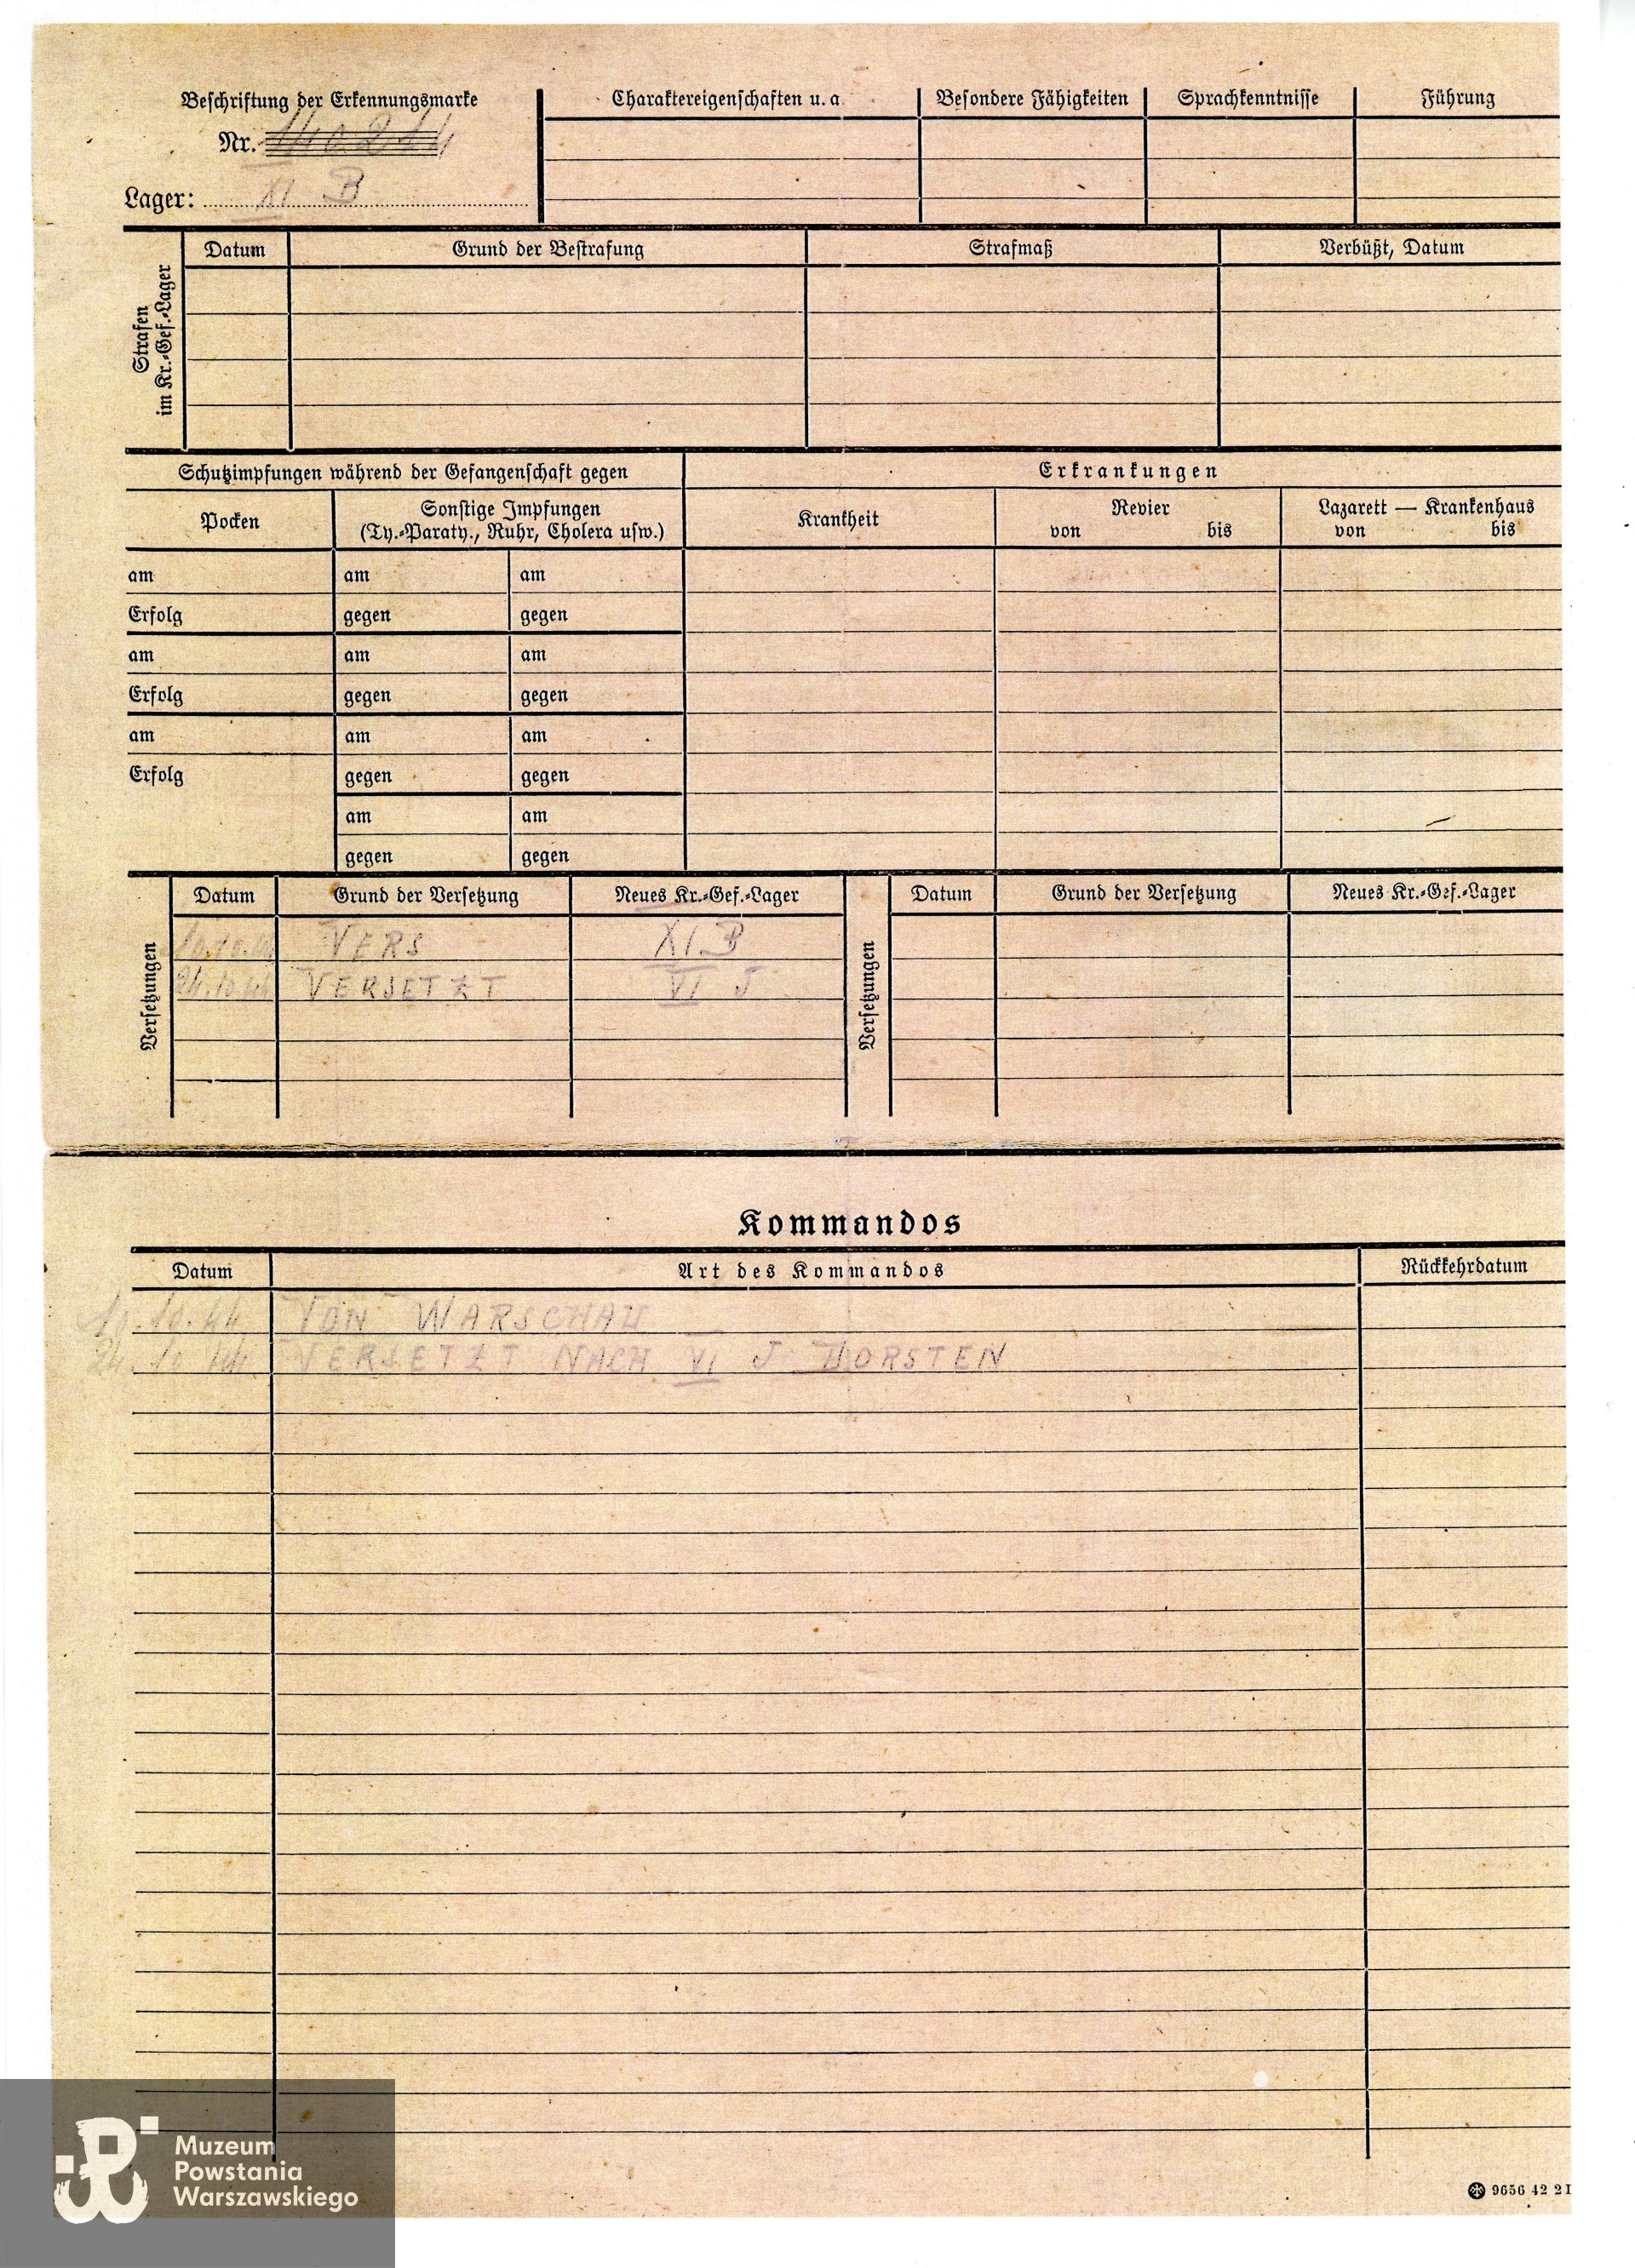 Beschriftung der Erkennungsmarke
Nr.
Lager: XI B
Charaktereigenschaften u. a.
Besondere Fähigkeiten
Sprachkenntnisse
Führung
Strafen
im Kr.-Gef.-Lager
Datum
Grund der Bestrafung
Strafmaß
Verbüßt, Datum
Schutzimpfungen während der Gefangenschaft gegen
Erkrankungen
Pocken
Sonstige Impfungen
(Ty.-Paraty., Ruhr, Cholera usw.)
Krankheit
Revier
von bis
Lazarett — Krankenhaus
von bis
am am am
Erfolg gegen gegen
am am am
Erfolg gegen gegen
am am am
Erfolg gegen gegen
am am
gegen gegen
Versetzungen
Datum Grund der Versetzung Neues Kr.-Gef.-Lager
VERS XI.B
24.10.44 VERSETZT VI J
Versetzungen
Datum Grund der Versetzung Neues Kr.-Gef.-Lager
Kommandos
Datum Art des Kommandos Rückkehrdatum
10.10.44 VON WARSCHAU
24.10.44 VERSETZT NACH VI J DORSTEN
9656 42 2I
Muzeum
Powstania
Warszawskiego